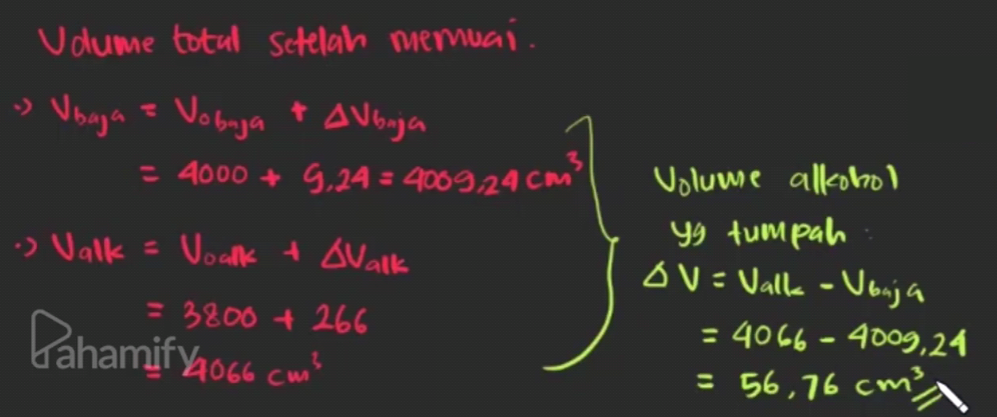 Volume total setelah memuai.
·> Vbaja = Vobaja + ΔVbaja
= 4000 + 9,24 = 4009,24 cm³
·> Valk = Voalk + ΔValk
= 3800 + 266
= 4066 cm³
Volume alkohol
yg tumpah :
ΔV = Valk - Vbaja
= 4066 - 4009,24
= 56,76 cm³
Pahamify